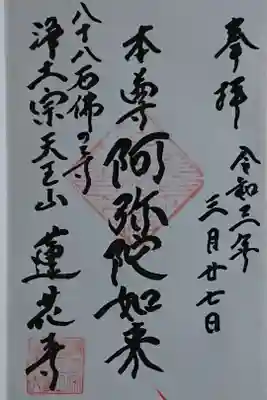 奉拝
令和三年
三月廿七日
本尊阿弥陀如来
八十八石佛の寺
浄土宗天王山蓮花寺